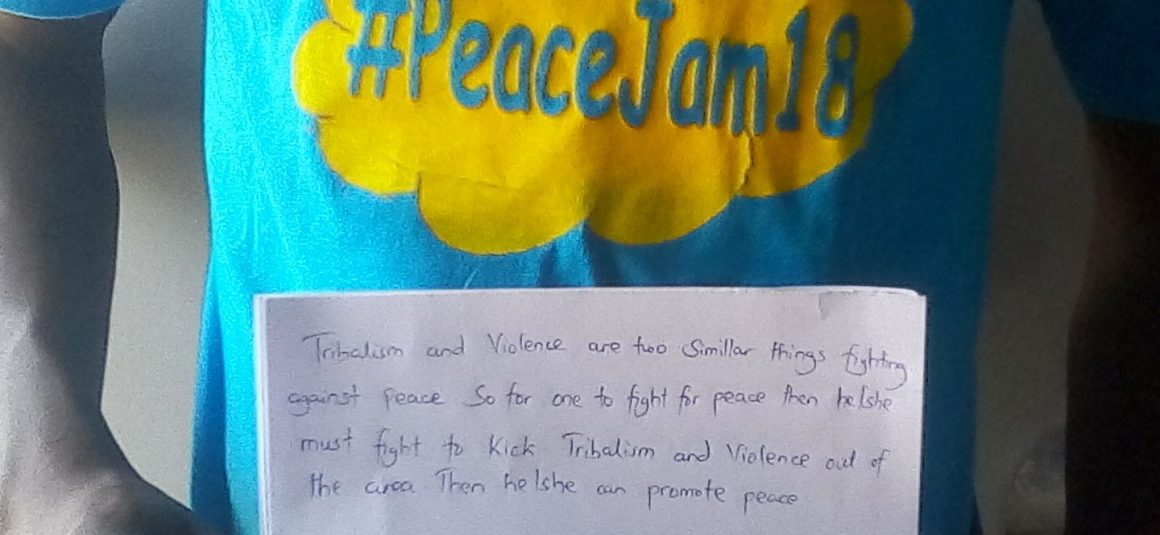 #PeaceJam18
Tribalism and Violence are two Simillar things fighting
against peace So for one to fight for peace then he/she
must fight to Kick Tribalism and Violence out of
the area Then he/she can promote peace